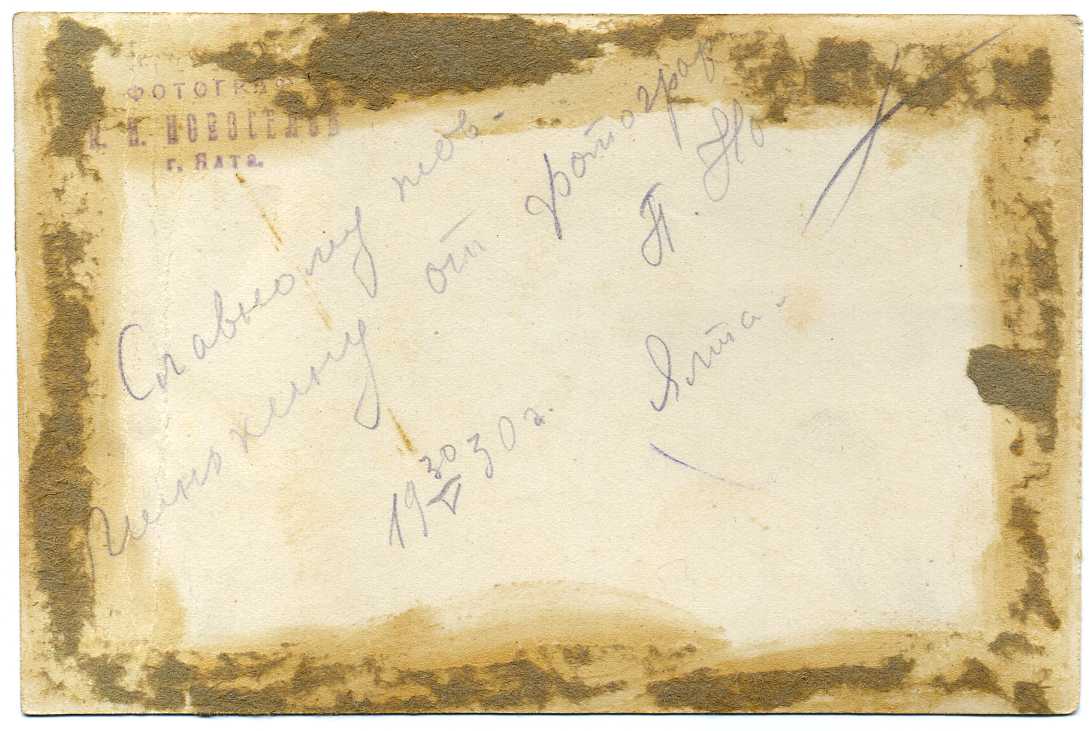 ФОТОГРАФ
НОВОСЕЛОВ
г. Ялта.
Славному тов.
от фотограф
П. Но
Ялта.
19 30/V 30 г.